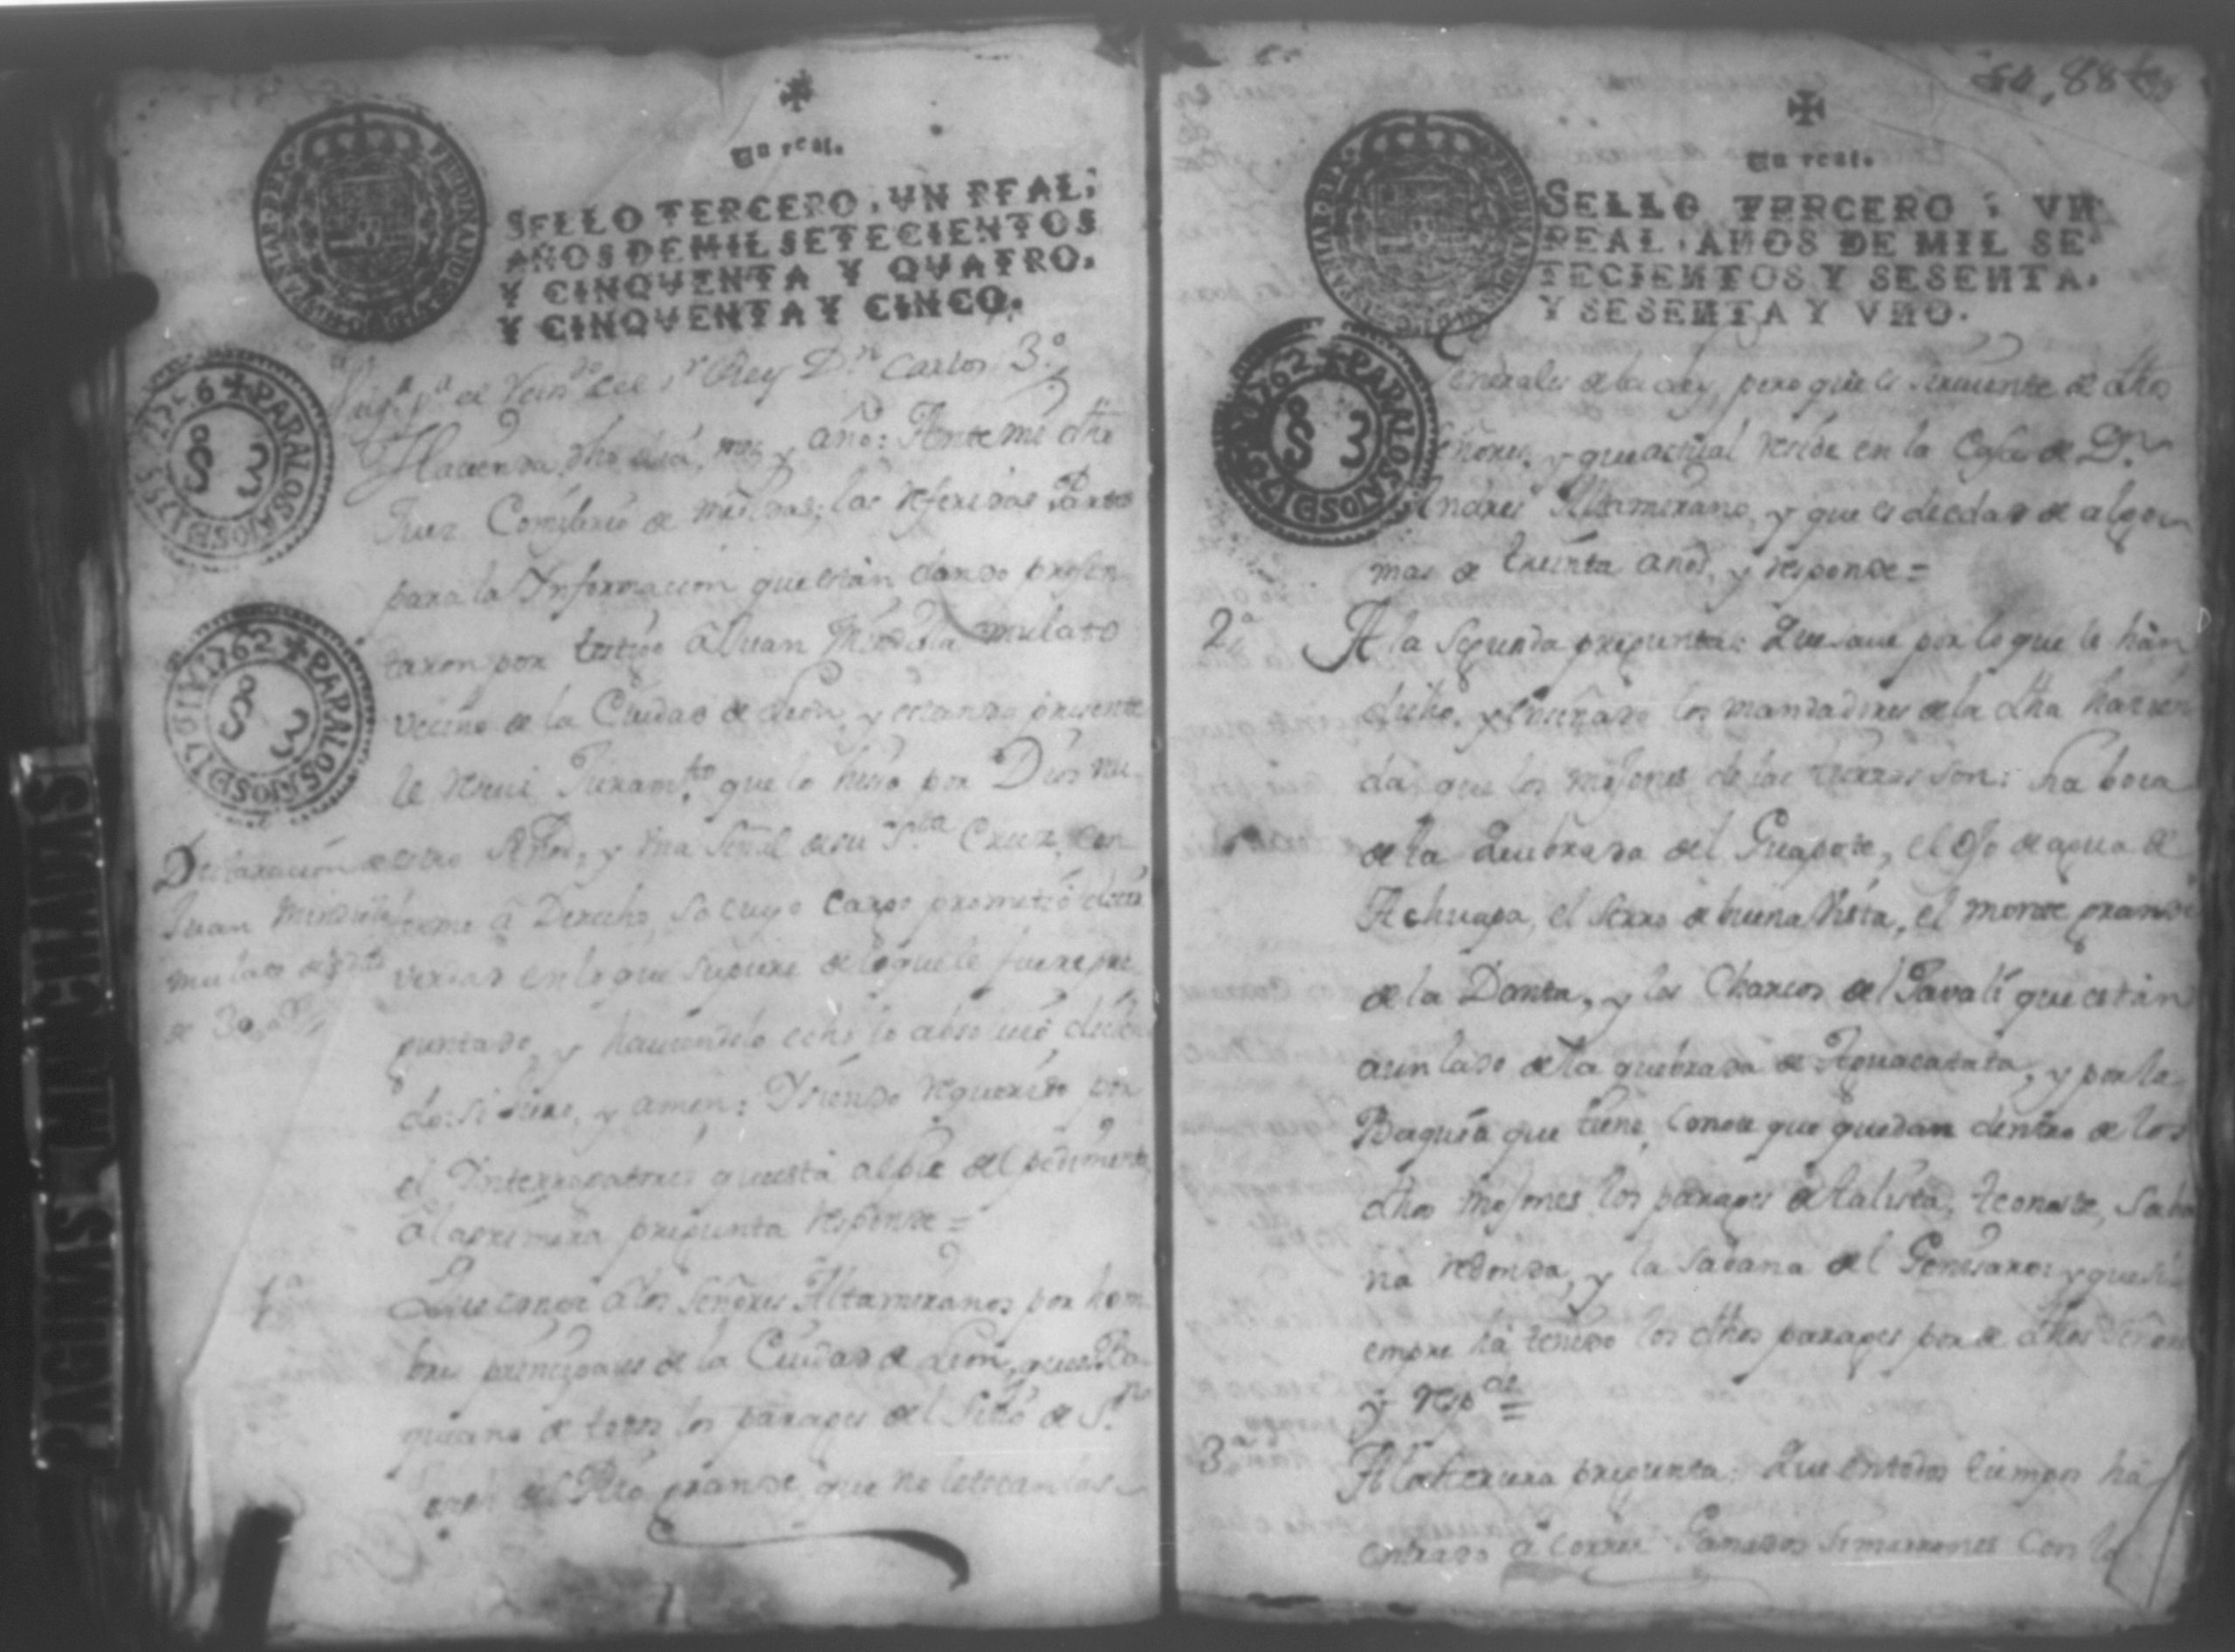 Un real.
SELLO TERCERO, VN REAL,
AÑOS DE MIL SETECIENTOS
Y CINQVENTA Y QVATRO,
Y CINQVENTA Y CINCO.
el Rein.do del S.r Rey D.n Carlos 3.o
Hacienda, dho dia, mes y año: Ante mi dho
Juez Comisario de medidas; las referidas Partes
para la Informacion que están dando presen
taron por testigo â Juan Mendiola mulato
vecino de la Ciudad de Leon, y estando presente
le reciví Juram.to que lo hiso por Dios nu
estro Señor, y una señal de su S.ta Cruz, con
forme â Derecho, so cuyo cargo prometió decir
verdad en lo que supiere de lo que le fuere pre
guntado, y haciendolo echo lo absolvió dicien
do: si Juro, y amen: Y siendo requerido por
el Interrogatorio que está al pie del pedimento
â la primera pregunta responde =
Declaracion de
Juan Mendiola
mulato de
de 30 a.s
1.a
Que conoce a los Señores Altamiranos por hom
bres principales de la Ciudad de Leon, que es Ba
quiano de todos los parages del Sitio de S.n
del Rio grande, que no le tocan las
PARA LOS AÑOS DE 1755 Y 1756
S 3
PARA LOS AÑOS DE 1761 Y 1762
S 3
88
Un real.
SELLO TERCERO, VN
REAL, AÑOS DE MIL SE-
TECIENTOS Y SESENTA,
Y SESENTA Y VNO.
PARA LOS AÑOS DE 1762
S 3
Generales de la Ley, pero que es sirviente de dhos
Señores, y que actual recide en la Casa de D.n
Andres Altamirano, y que es de edad de algo
mas de treinta años, y responde =
2.a
A la segunda pregunta: Que save por lo que le hàn
dicho, y enseñado los mandadores de la dha hacien
da, que los mojones de las tierras son: La boca
de la Quebrada del Guapote, el Ojo de agua de
Achuapa, el serro de buena Vista, el monte grande
de la Danta, y los Charcos del Javalí que están
a un lado de la quebrada de Aguacatata, y por la
Baquia que tiene, conoce que quedan dentro de los
dhos mojones los parages de talista, teconaste, saba
na redonda, y la sabana del Genisaro: y que si
empre hà tenido los dhos parages por de dhos Señores
y resp.de
3.a
A la tercera pregunta: Que en todos tiempos hà
entrado â correr Ganados simarrones con lo
PAGINAS MANCHADAS